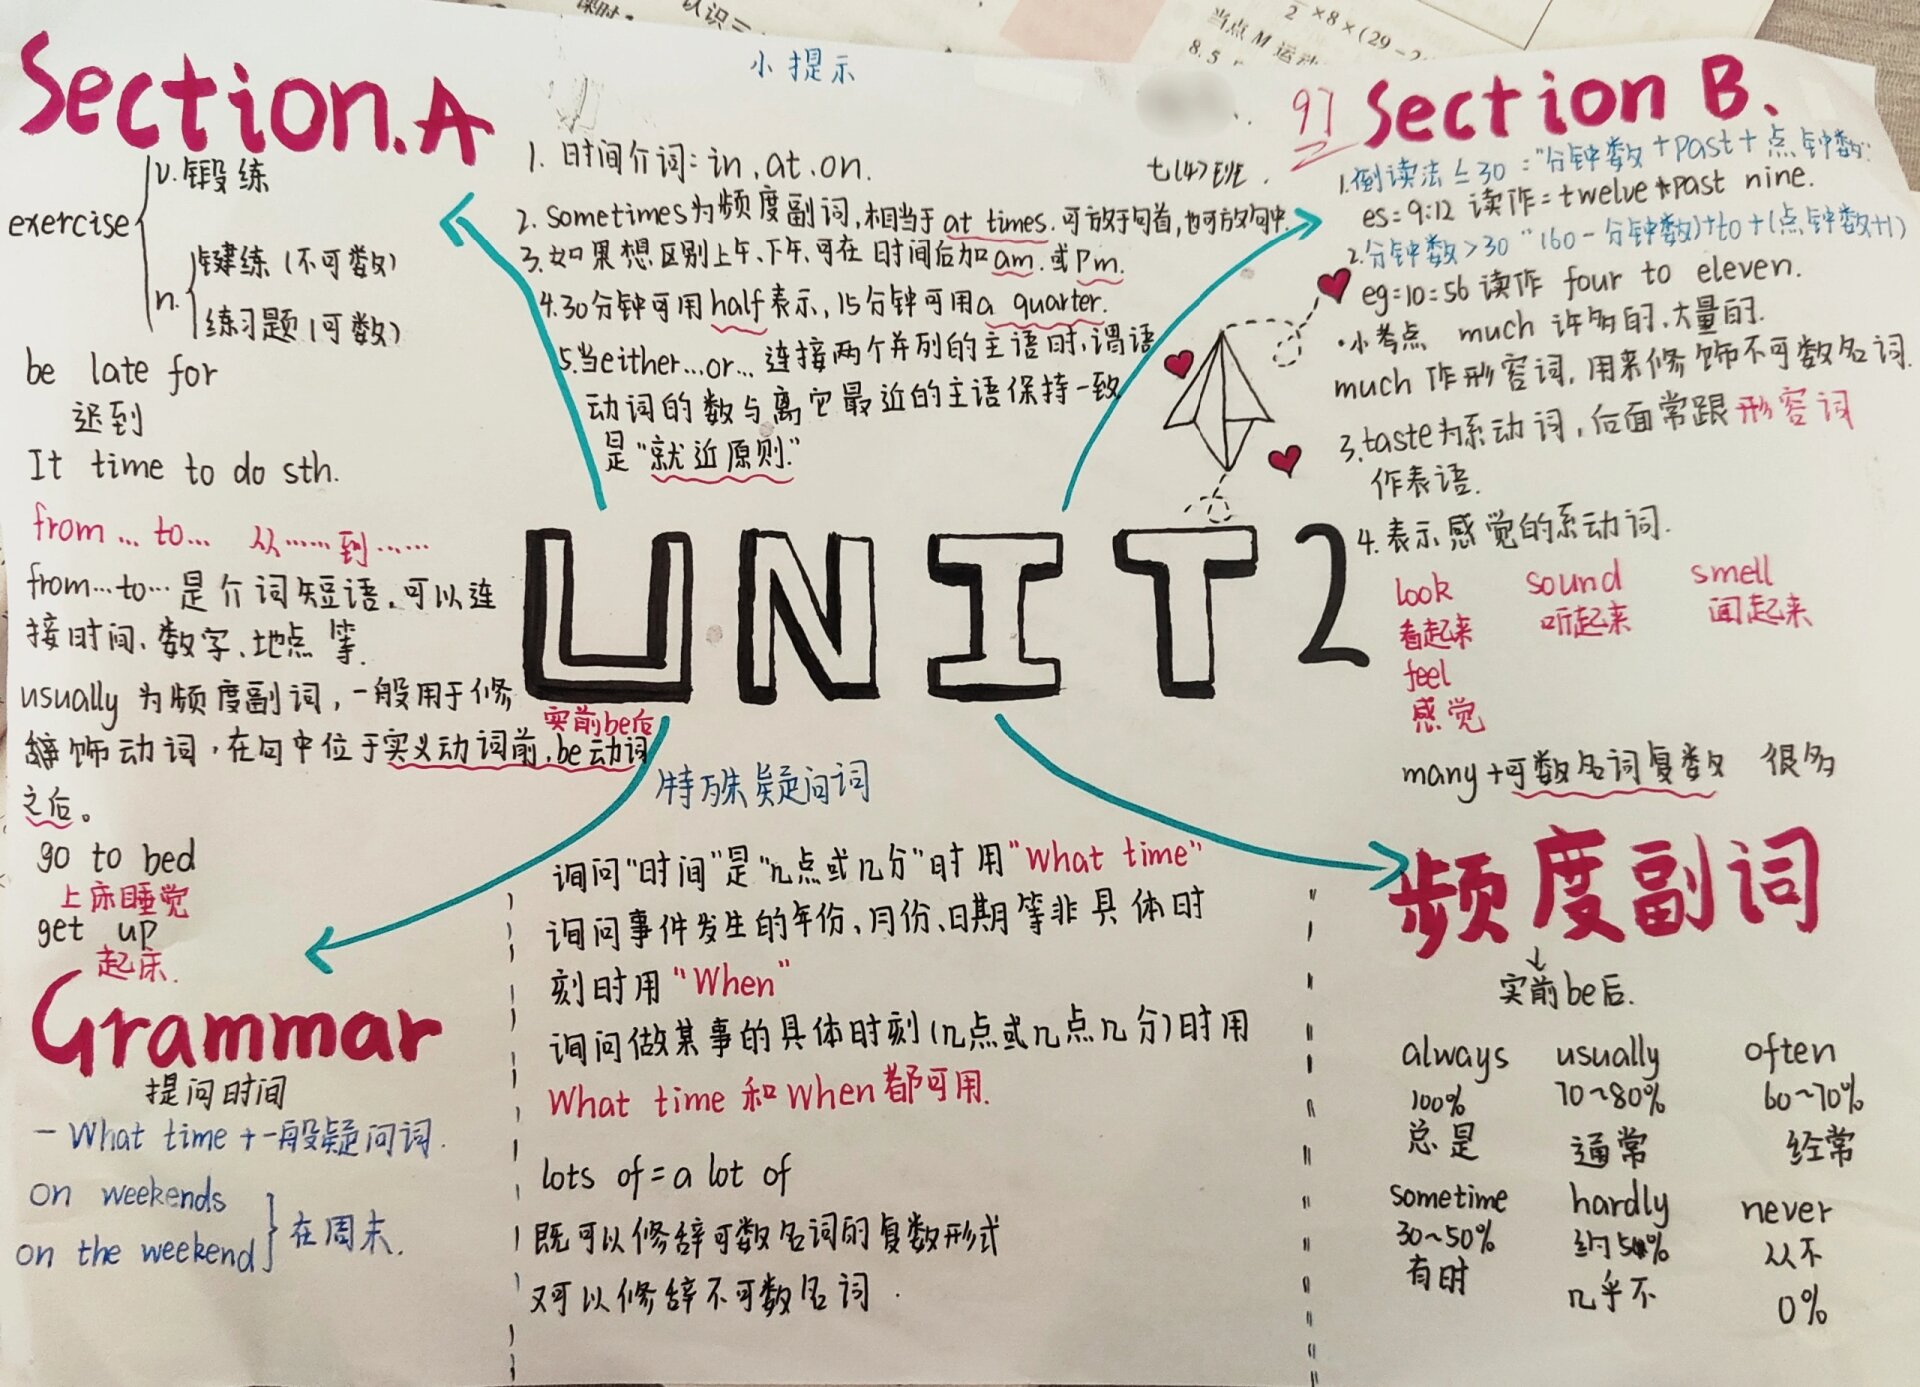 认识二
2 ×8×(29-2
当点 M 运动
8.5
小提示
Section.A
exercise
v.锻练
n.
锻练(不可数)
练习题(可数)
be late for
迟到
It time to do sth.
from … to … 从……到……
from…to…是介词短语,可以连
接时间、数字、地点等.
usually 为频度副词,一般用于修
饰动词,在句中位于实义动词前,be动词
之后。
实前be后
go to bed
上床睡觉
get up
起床.
1. 时间介词:in,at,on.
2. sometimes为频度副词,相当于at times.可放于句首,也可放句中.
3.如果想区别上午、下午,可在时间后加am.或pm.
4.30分钟可用half表示,15分钟可用a quarter.
5.当either…or…连接两个并列的主语时,谓语
动词的数与离它最近的主语保持一致
是"就近原则."
UNIT 2
97
Section B.
1.倒读法≤30:"分钟数+past+点钟数"
es:9:12 读作:twelve past nine.
2.分钟数>30 "(60-分钟数)+to+(点钟数+1)
eg:10:56读作 four to eleven.
·小考点 much 许多的,大量的.
much 作形容词,用来修饰不可数名词.
3.taste为系动词,后面常跟形容词
作表语.
4.表示感觉的系动词.
look sound smell
看起来 听起来 闻起来
feel
感觉
many+可数名词复数 很多
Grammar
提问时间
- What time +一般疑问词.
on weekends
on the weekend
在周末.
特殊疑问词
询问"时间"是"几点或几分"时用"What time"
询问事件发生的年份、月份、日期等非具体时
刻时用"When"
询问做某事的具体时刻(几点或几点几分)时用
What time 和 when都可用.
lots of = a lot of
既可以修辞可数名词的复数形式
又可以修辞不可数名词.
频度副词
实前be后.
always usually often
100% 70~80% 60~70%
总是 通常 经常
sometime hardly never
30~50% 约5% 从不
有时 几乎不 0%